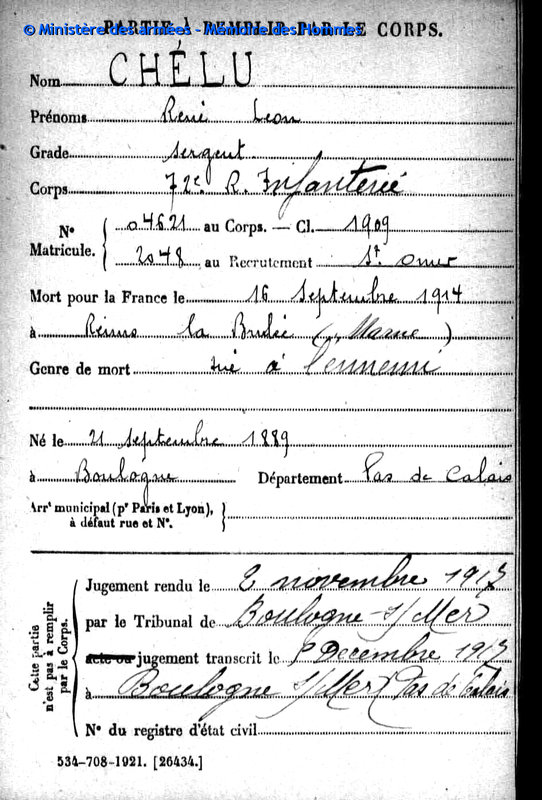 PARTIE À REMPLIR PAR LE CORPS.
© Ministère des armées - Mémoire des Hommes
Nom CHÉLU
Prénoms René Léon
Grade Sergent
Corps 72e R. Infanterie
N° Matricule. { 04621 au Corps. — Cl. 1909
2048 au Recrutement St Omer
Mort pour la France le 16 Septembre 1914
à Reims la (Marne)
Genre de mort tué à l'ennemi
Né le 21 Septembre 1889
à Boulogne Département Pas de Calais
Arrt municipal (pr Paris et Lyon), à défaut rue et N°. }
Cette partie n'est pas à remplir par le Corps.
Jugement rendu le 2 novembre 1917
par le Tribunal de Boulogne-s/Mer
acte ou jugement transcrit le Décembre 1917
à Boulogne s/Mer (Pas de Calais
N° du registre d'état civil
534-708-1921. [26434.]